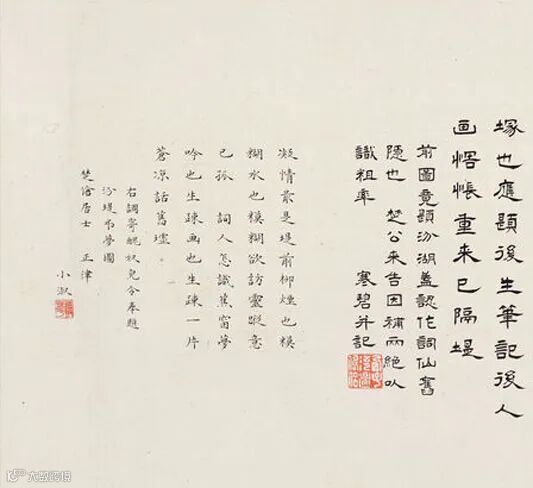 塚也應題後生筆記後人
画惆悵重来已隔堤
前圖竟題汾湖蓋認作詞仙舊
隱也 楚公来告因補兩絕以
識粗率 寒碧并記
凝情最是堤前柳煙也糢
糊水也糢糊欲訪靈蹤意
已孤 詞人怎識蕉窗夢
吟也生疎画也生疎一片
蒼凉話舊墟
右調寄醜奴兒令奉題
汾堤弔夢圖
楚傖居士 正津
小淑
大数跨境